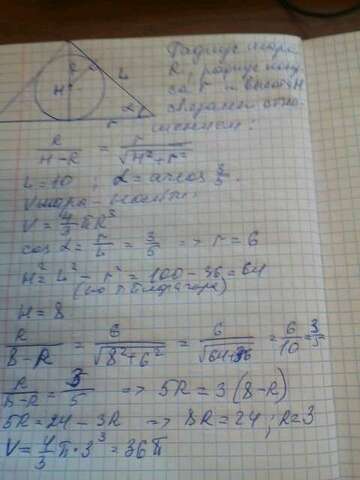 Радиус шара
R, радиус кону
са r и высота H
связаны соот-
ношением:
R
H
L
α
r
R/(H-R) = r/√(H²+r²)
L=10 ; α=arccos 3/5.
V шара - найти.
V = 4/3 πR³
cos α = r/L = 3/5 => r = 6
H² = L² - r² = 100 - 36 = 64
(по т. Пифагора)
H = 8
R/(8-R) = 6/√(8²+6²) = 6/√(64+36) = 6/10 = 3/5
R/(8-R) = 3/5 => 5R = 3(8-R)
5R = 24 - 3R => 8R = 24 ; R = 3
V = 4/3 π · 3³ = 36π